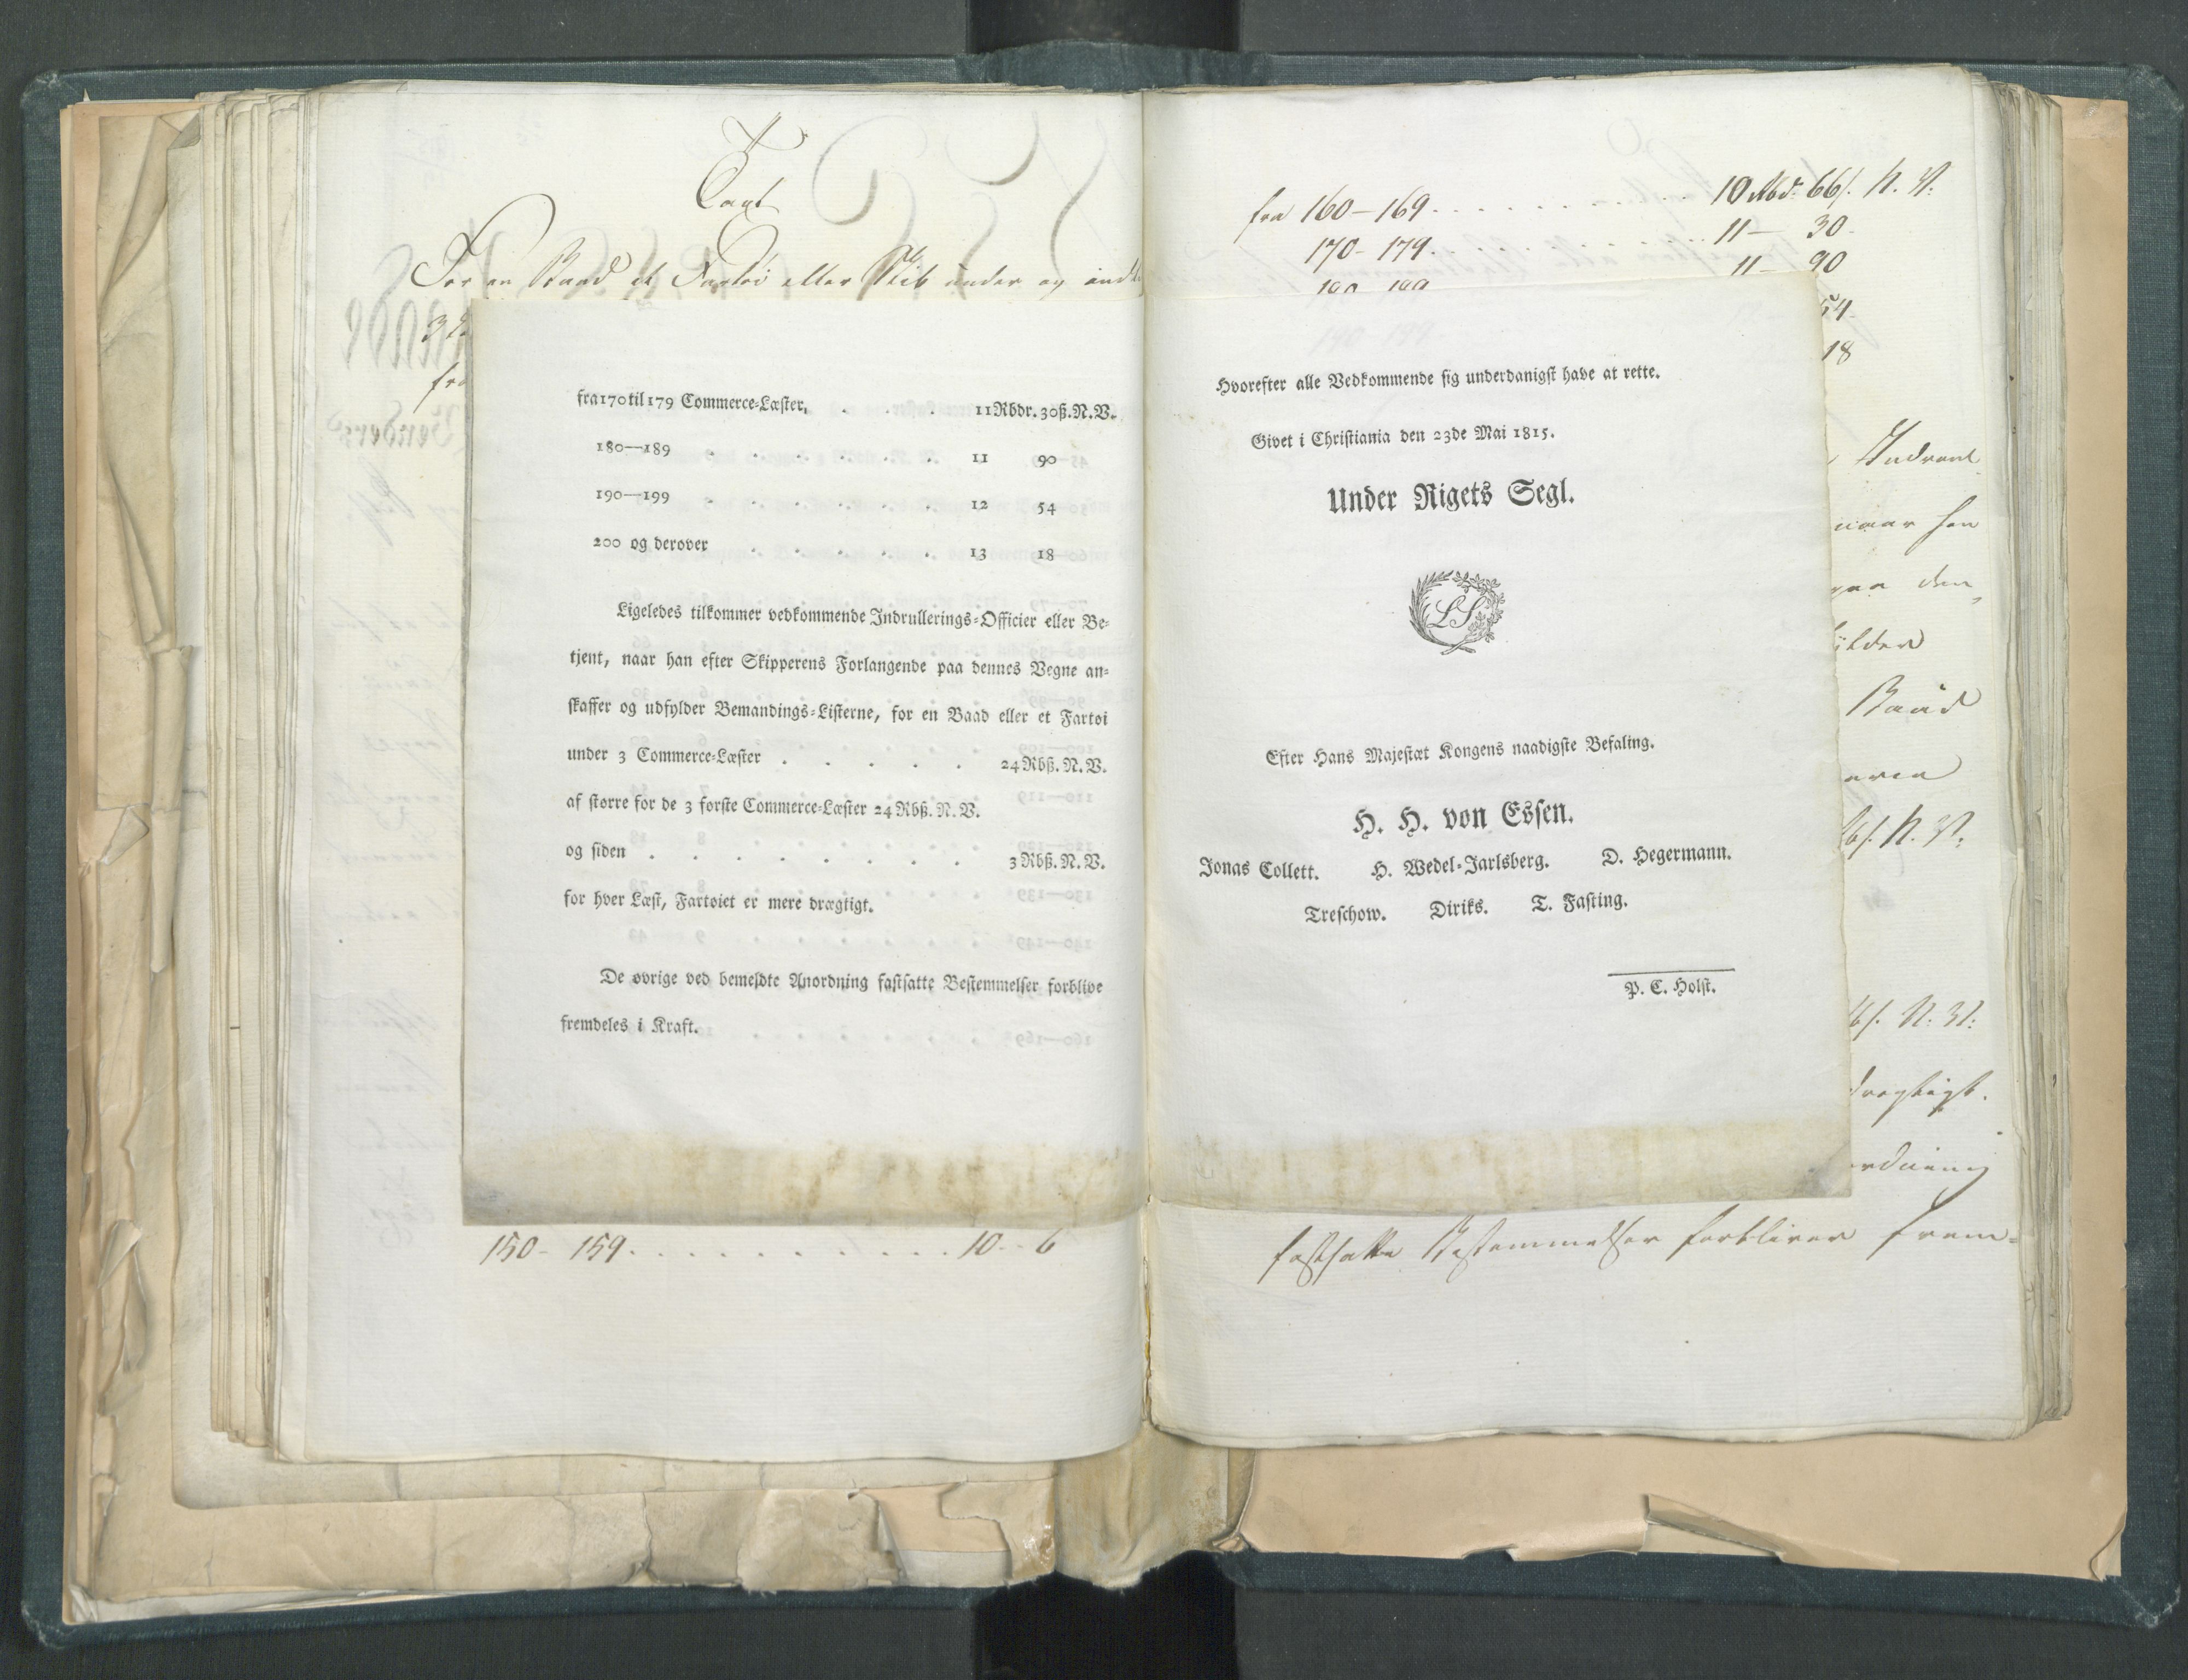 Taxt
For en Baad et Fartöi eller Skib under og indtil
fra170til179 Commerce-Læster, . . . . 11Rbdr. 30ß. N. V.
180—189 . . . . . . 11 90
190—199 . . . . . . 12 54
200 og derover . . . . . 13 18
Ligeledes tilkommer vedkommende Indrullerings-Officier eller Be-
tjent, naar han efter Skipperens Forlangende paa dennes Vegne an-
skaffer og udfylder Bemandings-Listerne, for en Baad eller et Fartøi
under 3 Commerce-Læster . . . . . 24 Rbß. N. V.
af større for de 3 første Commerce-Læster 24 Rbß. N. V.
og siden . . . . . . . . 3 Rbß. N. V.
for hver Læst, Fartøiet er mere drægtigt.
De øvrige ved bemeldte Anordning fastsatte Bestemmelser forblive
fremdeles i Kraft.
150 - 159 . . . . . . . . . . 10 - 6
fra 160 - 169 . . . . . . . . 10 Rbd: 66ß. N. V:
170 - 179 . . . . . . . 11 — 30
11 — 90
54
18
Hvorefter alle Vedkommende sig underdanigst have at rette.
Givet i Christiania den 23de Mai 1815.
Under Rigets Segl.
LS
Efter Hans Majestæt Kongens naadigste Befaling.
H. H. von Essen.
Jonas Collett. H. Wedel-Jarlsberg. D. Hegermann.
Treschow. Diriks. T. Fasting.
P. C. Holst.
naar han
paa den
Baad
N. V:
N: V:
drægtigt.
fastsatte Bestemmelser forbliver frem-